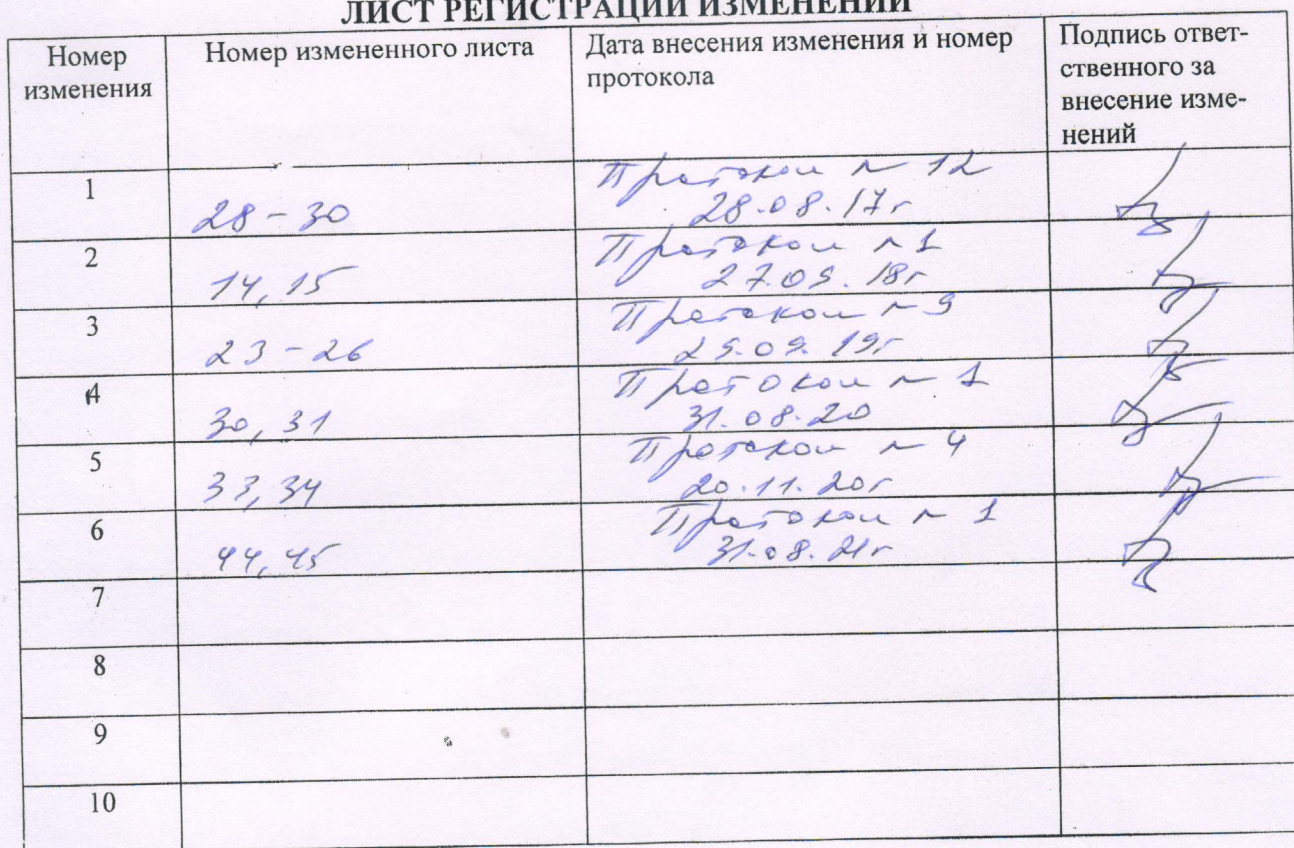 ЛИСТ РЕГИСТРАЦИИ ИЗМЕНЕНИЙ
Номер изменения
Номер измененного листа
Дата внесения изменения и номер протокола
Подпись ответ-
ственного за
внесение изме-
нений
1
28-30
Протокол № 12
28.08.17г
2
14,15
Протокол №1
27.09.18г
3
23-26
Протокол №9
25.09.19г
4
30,31
Протокол № 1
31.08.20
5
33,34
Протокол № 4
20.11.20г
6
44,45
Протокол № 1
31.08.21г
7
8
9
10